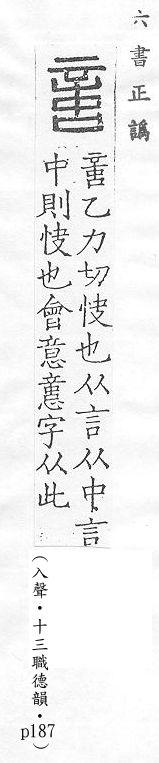 六書正譌
𠶷
𠶷乙力切快也从言从中言
中則快也會意𢡃字从此
（入聲·十三職德韻·p187）